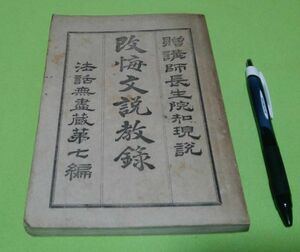 贈講師長生院和現説
改悔文説教錄
法話無盡蔵第七編